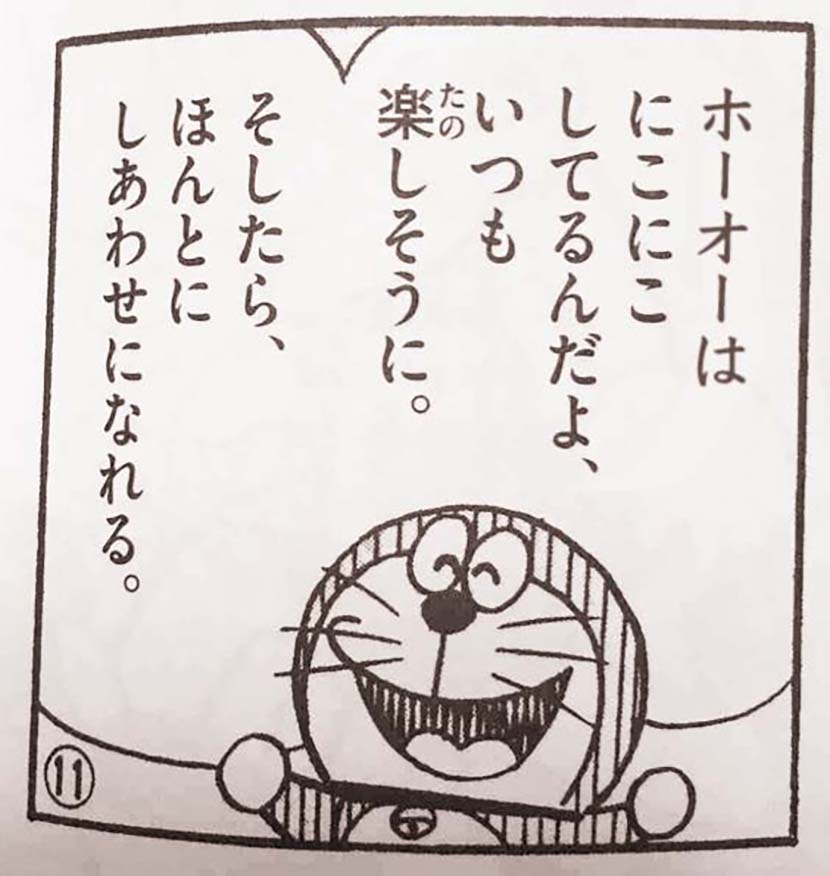 ホーオーは
にこにこ
してるんだよ、
いつも
楽しそうに。
たの
そしたら、
ほんとに
しあわせになれる。
11